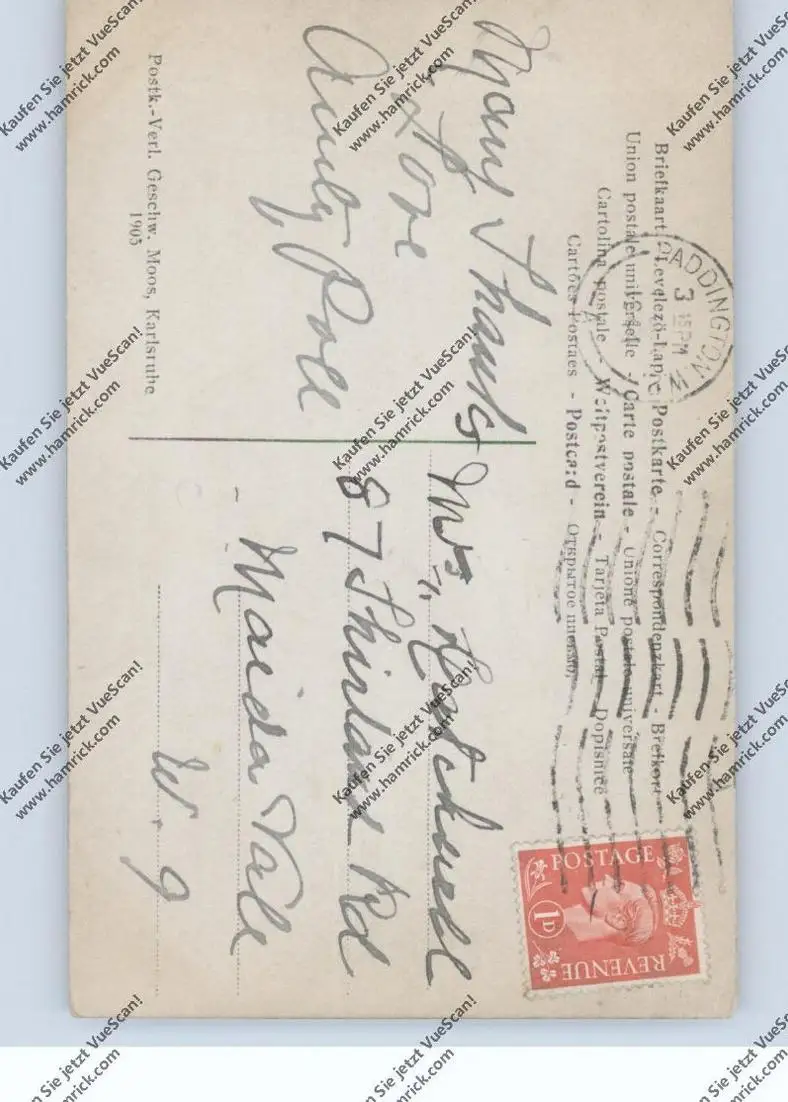 Briefkaart - Levelező-Lap - Postkarte - Correspondenzkart - Brefkort
Union postale universelle - Carte postale - Unione postale universale
Cartolina postale - Weltpostverein - Tarjeta Postal - Dopisnice
Cartões Postaes - Postcard - Открытое письмо.
PADDINGTON W
3 15 PM
POSTAGE
1D
REVENUE
Many Thanks
Love
Aunty Poll
Mrs
87 Shirland Rd
Maida Vale
W. 9
Postk.-Verl. Geschw. Moos, Karlsruhe
1905
Kaufen Sie jetzt VueScan!
www.hamrick.com